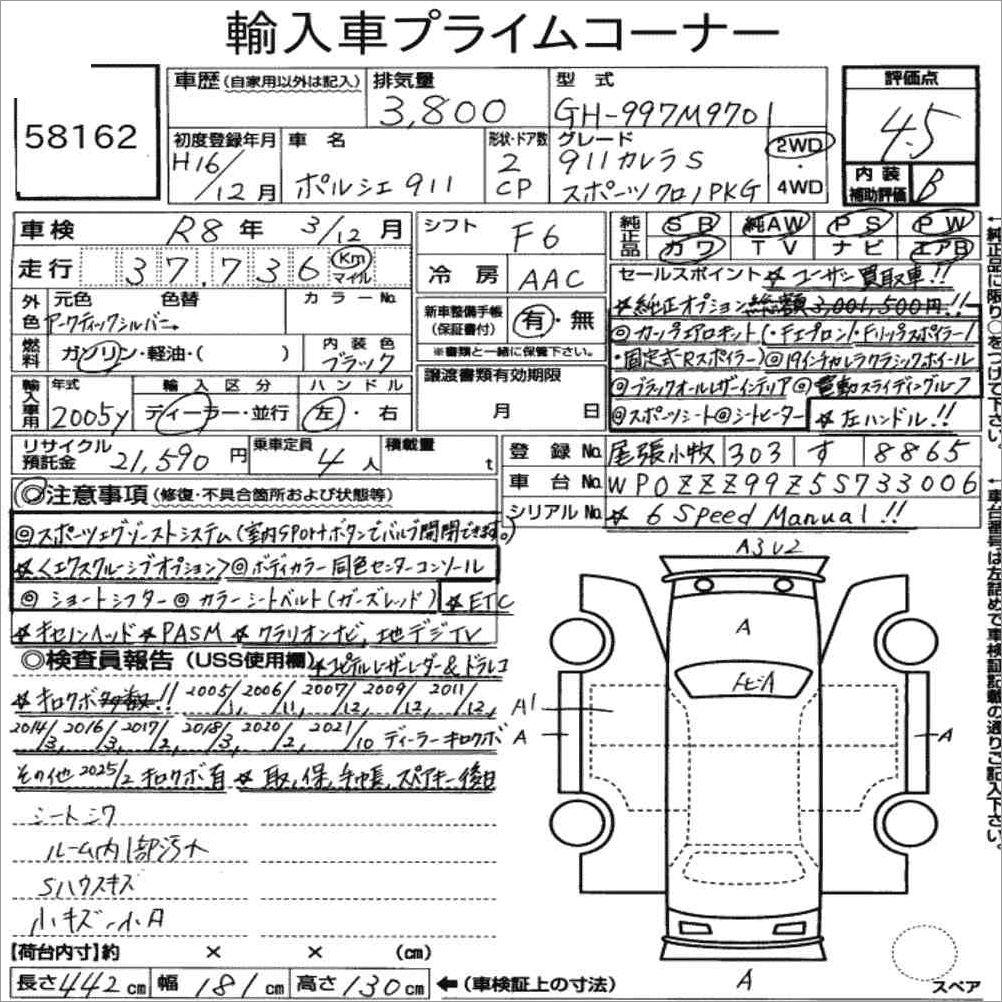 輸入車プライムコーナー
58162
車歴(自家用以外は記入)
排気量
3,800
型式
GH-997M9701
評価点
4.5
初度登録年月
H16/12月
車名
ポルシェ 911
形状・ドア数
2
CP
グレード
911 カレラ S
スポーツクロノPKG
2WD
・
4WD
内装
補助評価
B
車検
R8年 3/12月
シフト
F6
純正品
SB
純AW
PS
PW
カワ
TV
ナビ
エアB
走行
37,736
Km
マイル
冷房
AAC
セールスポイント ☆ユーザー買取車!!
☆純正オプション総額3,001,500円!!
外色
元色
色替
カラーNo.
アークティックシルバー
新車整備手帳
(保証書付)
有・無
※書類と一緒に保管下さい。
◎カップエアロキット(・Fエプロン/・Fリップスポイラー/
・固定式Rスポイラー)◎19インチカレラクラシックホイール
◎ブラックオールレザーインテリア◎電動スライディングルーフ
◎スポーツシート◎シートヒーター ☆左ハンドル!!
燃料
ガソリン・軽油・( )
内装色
ブラック
譲渡書類有効期限
月 日
輸入車用
年式
2005y
輸入区分
ディーラー・並行
ハンドル
左・右
リサイクル
預託金
21,590円
乗車定員
4人
積載量
t
登録No.
尾張小牧
303
す
8865
車台No.
WP0ZZZ99Z5S733006
シリアルNo.
☆ 6 Speed Manual!!
◎注意事項(修復・不具合箇所および状態等)
◎スポーツエグゾーストシステム(室内SPORTボタンでバルブ開閉できます。)
☆<エクスクルーシブオプション>◎ボディカラー同色センターコンソール
◎ショートシフター◎カラーシートベルト(ガーズレッド)☆ETC
☆キセノンヘッド☆PASM☆クラリオンナビ、地デジTV
◎検査員報告(USS使用欄)☆ユピテルレーザーレーダー&ドラレコ
☆キロクボ多数!! 2005/1, 2006/11, 2007/12, 2009/12, 2011/12,
2014/3, 2016/3, 2017/2, 2018/3, 2020/2, 2021/10 ディーラーキロクボ
その他2025/2キロクボ有 ☆取、保、手帳、スペアキー後日
シートシワ
ルーム内1部汚れ
Sハウスキズ
小キズ・小A
A3 V2
A
トビA
A1
A
A
A
【荷台内寸】約 × × (cm)
長さ442cm
幅181cm
高さ130cm
←(車検証上の寸法)
スペア
←純正品に限り○をつけて下さい。
←車台番号は左詰めで車検証記載の通りご記入下さい。